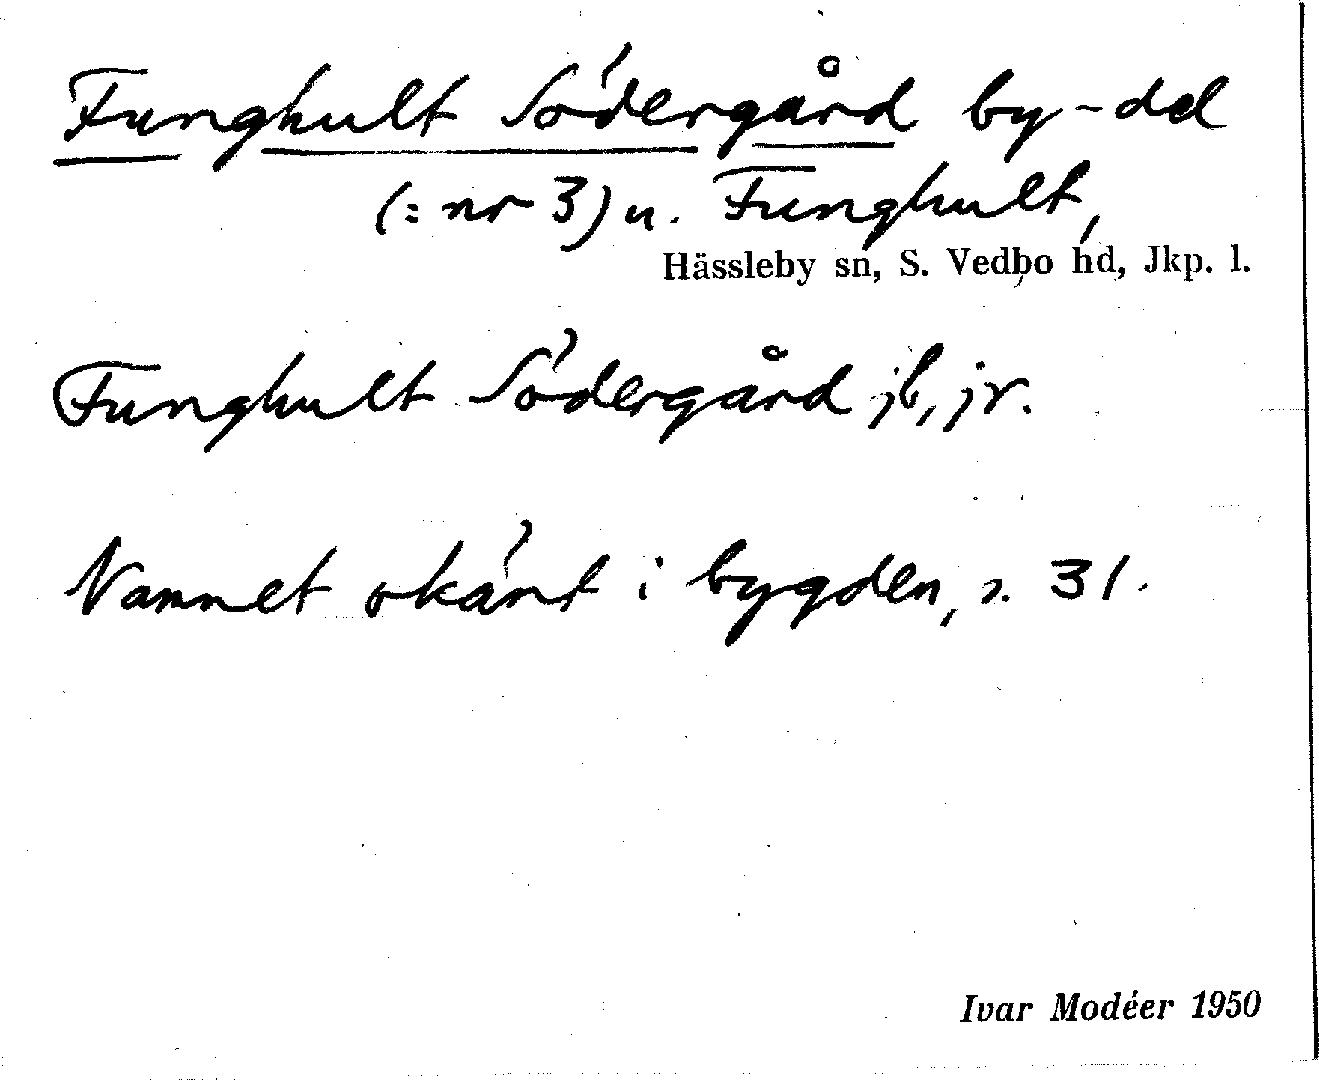 Funghult Södergård by-del
(= nr 3) u. Funghult,
Hässleby sn, S. Vedbo hd, Jkp. l.
Funghult Södergård jb, jr.
Namnet okänt i bygden, s. 31.
Ivar Modéer 1950